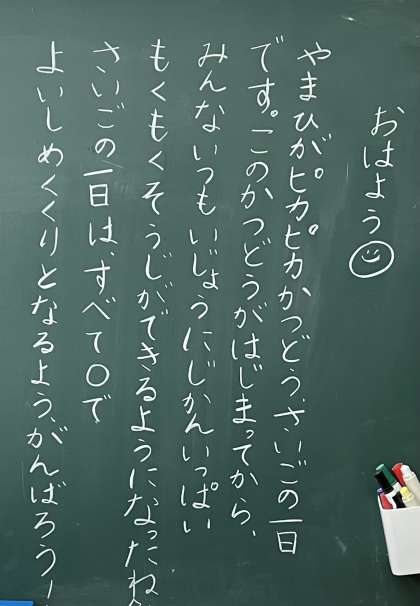 おはよう
やまひがピカピカかつどう、さいごの一日
です。このかつどうがはじまってから、
みんないつもいじょうにじかんいっぱい
もくもくそうじができるようになったね
さいごの一日は、すべて〇で
よいしめくくりとなるよう、がんばろう！